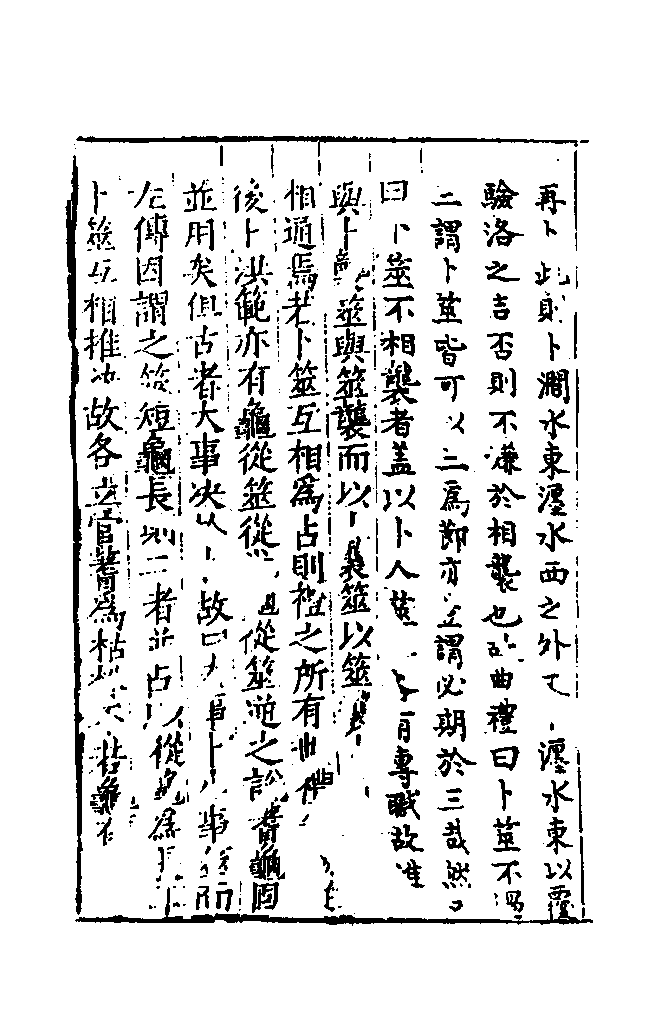 再卜此則卜澗水東瀍水西之外又卜瀍水東以覆
驗洛之吉否則不嫌於相襲也故曲禮曰卜筮不過
三謂卜筮皆可以三為節亦謂必期於三哉然
曰卜筮不相襲者蓋以卜人筮有專職故唯
與卜筮與筮襲而以卜襲筮以筮
相通焉若卜筮互相為占則禮之所有
後卜洪範亦有龜從筮從從筮逆之說蓍龜固
並用矣但古者大事決以卜故曰大事卜小事筮而
左傳因謂之筮短龜長則二者並占以從龜為
卜筮互相推故各立官蓍為枯龜